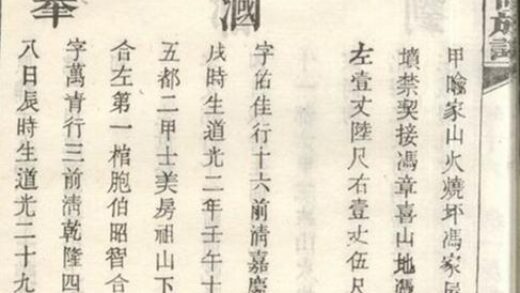 族譜
甲噲家山火燒坪馮家屋
墳禁契接馮章喜山地憑
左壹丈陸尺右壹丈伍尺
字佑佳行十六前清嘉慶
戌時生道光二年壬午十
五都二甲士美房祖山下
合左第一棺胞伯昭智合
字萬青行三前清乾隆四
八日辰時生道光二十九